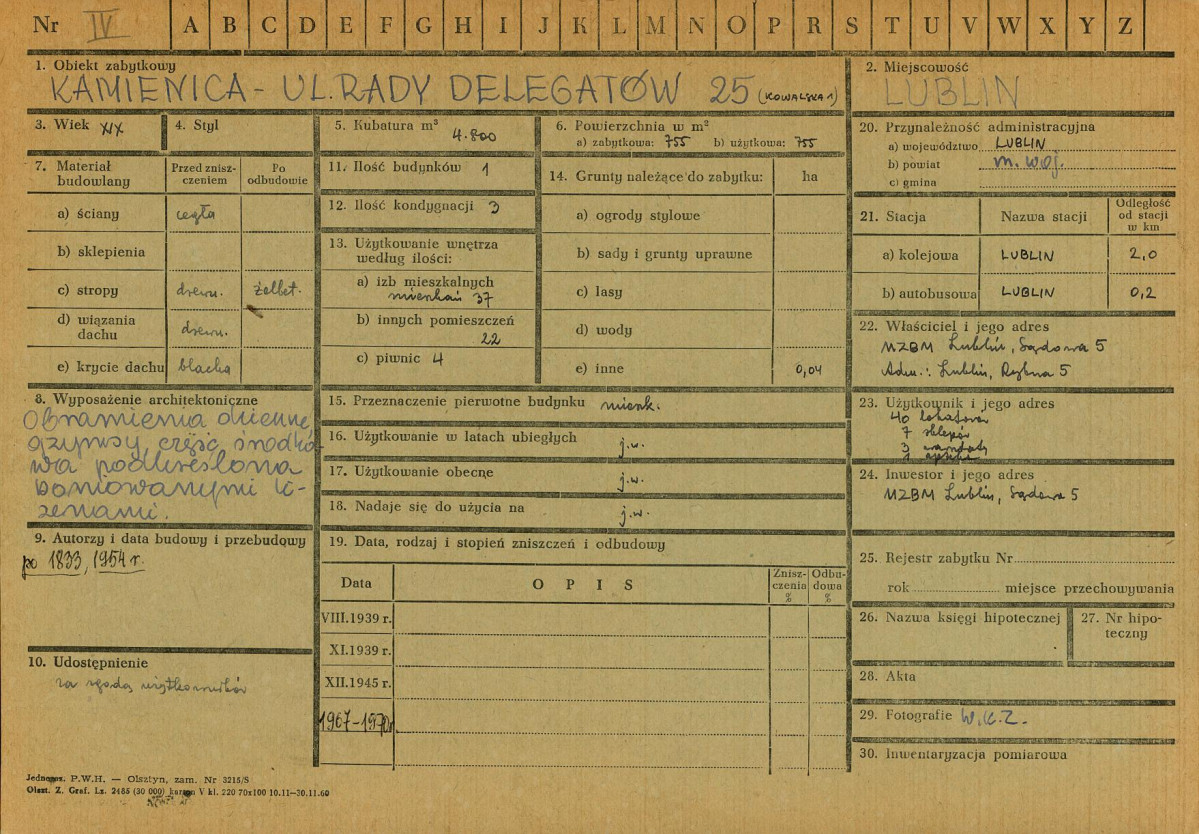 Nr IV A B C D E F G H I J K L M N O P R S T U V W X Y Z
1. Obiekt zabytkowy
KAMIENICA - UL. RADY DELEGATÓW 25 (KOWALSKA 1)
2. Miejscowość
LUBLIN
3. Wiek XIX
4. Styl
5. Kubatura m³ 4.800
6. Powierzchnia w m²
a) zabytkowa: 755 b) użytkowa: 755
7. Materiał budowlany
Przed znisz-
czeniem
Po
odbudowie
a) ściany cegła
b) sklepienia
c) stropy drewn. żelbet.
d) wiązania
dachu drewn.
e) krycie dachu blacha
8. Wyposażenie architektoniczne
Obramienia okienne,
gzymsy, część środko-
wa podkreślona
boniowanymi li-
zenami.
9. Autorzy i data budowy i przebudowy
po 1833, 1954 r.
10. Udostępnienie
za zgodą użytkowników
11. Ilość budynków 1
12. Ilość kondygnacji 3
13. Użytkowanie wnętrza
według ilości:
a) izb mieszkalnych
mieszkań 37
b) innych pomieszczeń
22
c) piwnic 4
14. Grunty należące do zabytku: ha
a) ogrody stylowe
b) sady i grunty uprawne
c) lasy
d) wody
e) inne 0,04
15. Przeznaczenie pierwotne budynku mieszk.
16. Użytkowanie w latach ubiegłych j.w.
17. Użytkowanie obecne j.w.
18. Nadaje się do użycia na j.w.
19. Data, rodzaj i stopień zniszczeń i odbudowy
Data OPIS
Znisz-
czenia
%
Odbu-
dowa
%
VIII.1939 r.
XI.1939 r.
XII.1945 r.
1967-1970r
20. Przynależność administracyjna
a) województwo LUBLIN
b) powiat m. woj.
c) gmina
21. Stacja Nazwa stacji
Odległość
od stacji
w km
a) kolejowa LUBLIN 2,0
b) autobusowa LUBLIN 0,2
22. Właściciel i jego adres
MZBM Lublin, Sądowa 5
Adm.: Lublin, Rybna 5
23. Użytkownik i jego adres
40 lokatorów
7 sklepów
3 warsztaty
1 apteka
24. Inwestor i jego adres
MZBM Lublin, Sądowa 5
25. Rejestr zabytku Nr
rok miejsce przechowywania
26. Nazwa księgi hipotecznej
27. Nr hipo-
teczny
28. Akta
29. Fotografie W.K.Z.
30. Inwentaryzacja pomiarowa
P.W.H. — Olsztyn, zam. Nr 3215/S
Olszt. Z. Graf. Lz. 2485 (30 000) karton V kl. 220 70x100 10.11—30.11.60